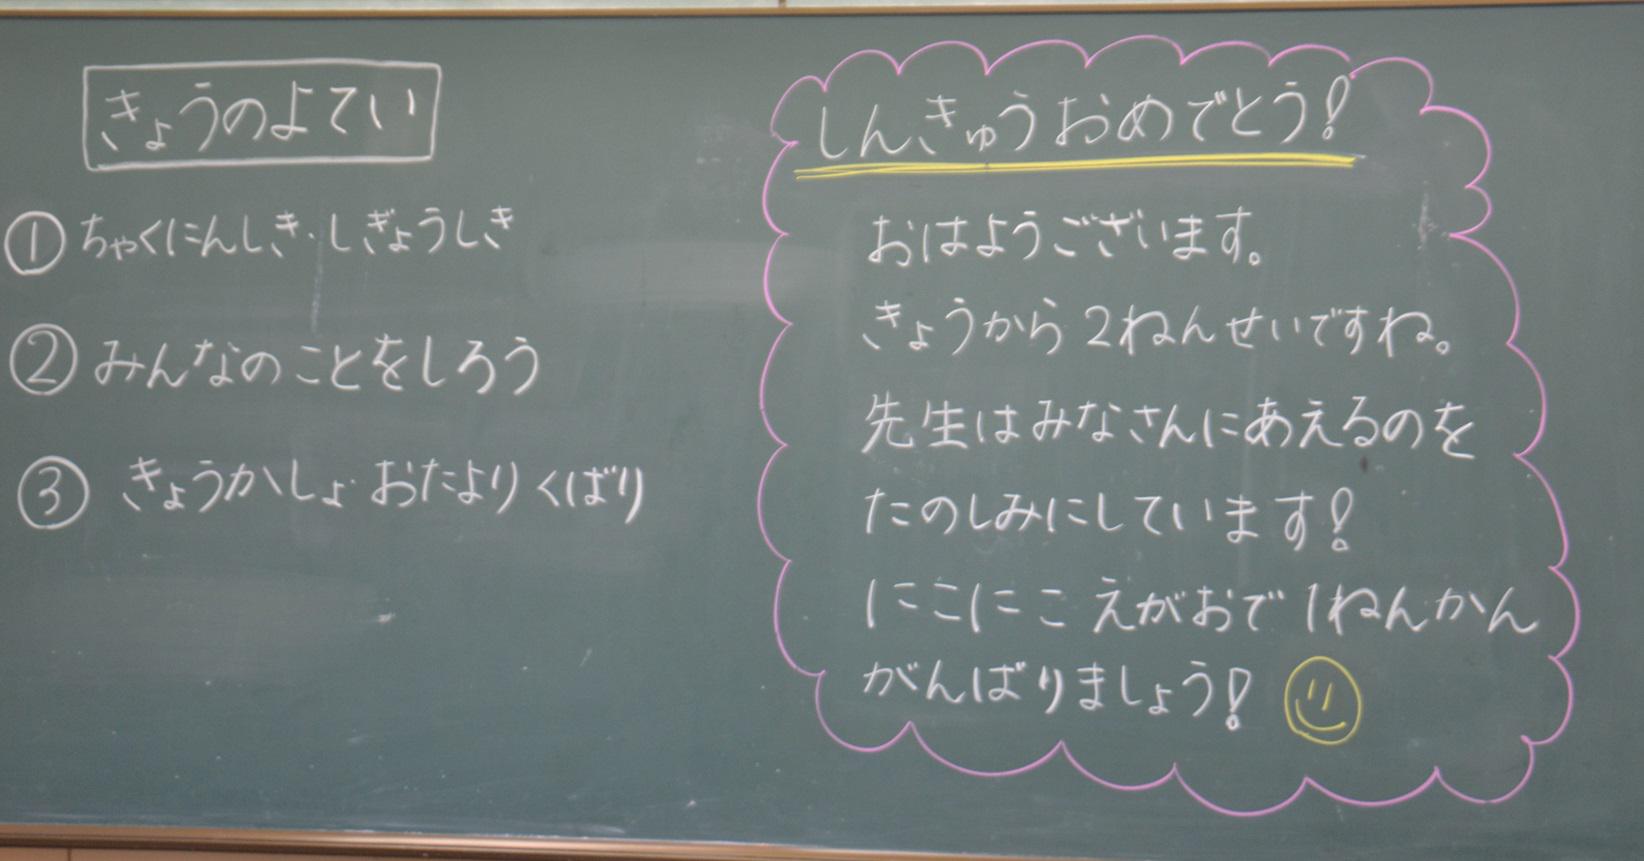 きょうのよてい
① ちゃくにんしき・しぎょうしき
② みんなのことをしろう
③ きょうかしょ・おたよりくばり
しんきゅうおめでとう!
おはようございます。
きょうから2ねんせいですね。
先生はみなさんにあえるのを
たのしみにしています!
にこにこ えがおで 1ねんかん
がんばりましょう!